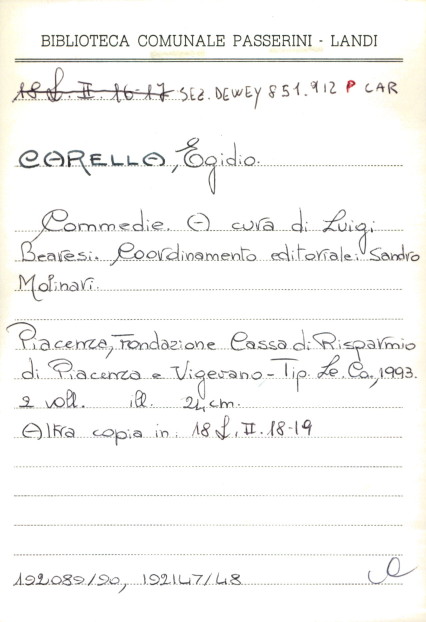 BIBLIOTECA COMUNALE PASSERINI - LANDI
18 L. II. 16-17 SEZ. DEWEY 851.912 P CAR
CARELLA, Egidio.
Commedie. A cura di Luigi
Bearesi. Coordinamento editoriale: Sandro
Molinari.
Piacenza, Fondazione Cassa di Risparmio
di Piacenza e Vigevano - Tip. Le. Co., 1993.
2 voll. ill. 24 cm.
Altra copia in: 18 L. II. 18-19
192089/90, 192147/48